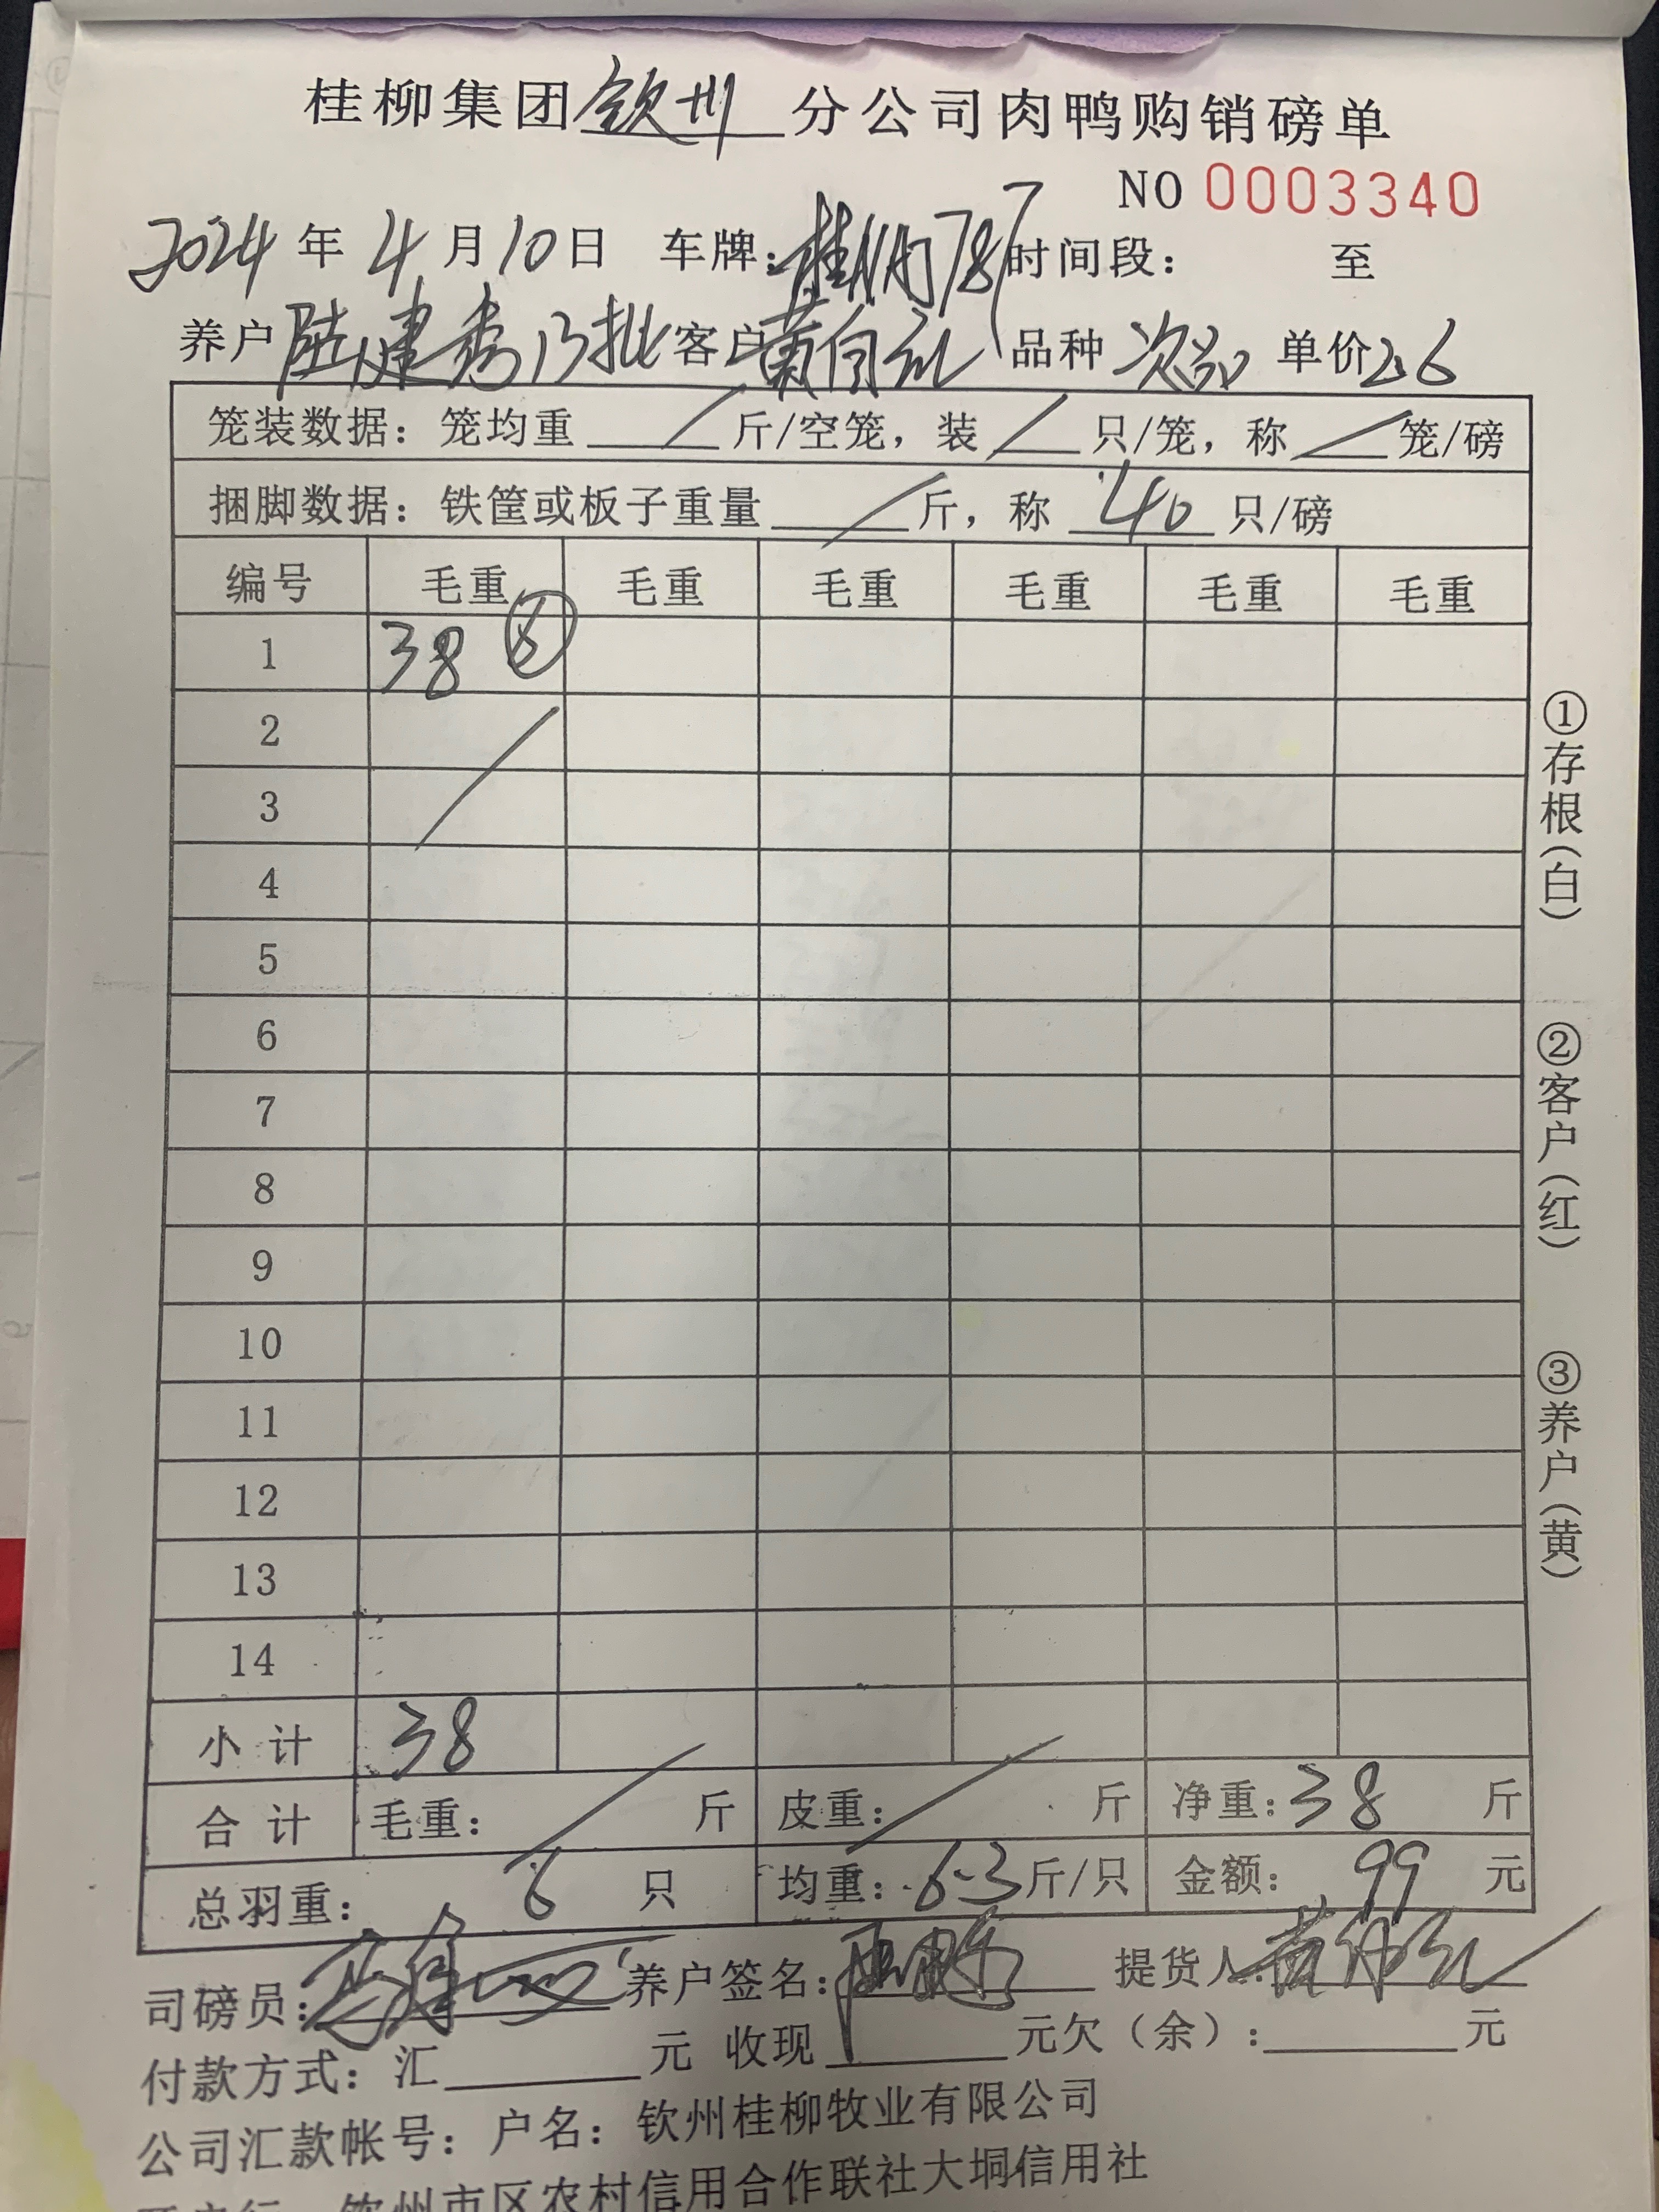 桂柳集团钦州分公司肉鸭购销磅单
NO 0003340
2024年4月10日 车牌：桂 787 时间段： 至
养户陆建秀13批 客户黄伯 品种次品 单价2.6
笼装数据：笼均重/斤/空笼，装/只/笼，称/笼/磅
捆脚数据：铁筐或板子重量/斤，称40只/磅
编号 毛重 毛重 毛重 毛重 毛重 毛重
1 38 ⑥
2
3
4
5
6
7
8
9
10
11
12
13
14
小计 38
合计 毛重：/斤 皮重：/斤 净重：38斤
总羽重：6只 均重：6.3斤/只 金额：99元
司磅员： 养户签名： 提货人：黄
付款方式：汇 元 收现 元欠（余）： 元
公司汇款帐号：户名：钦州桂柳牧业有限公司
钦州市区农村信用合作联社大垌信用社
①存根（白）
②客户（红）
③养户（黄）